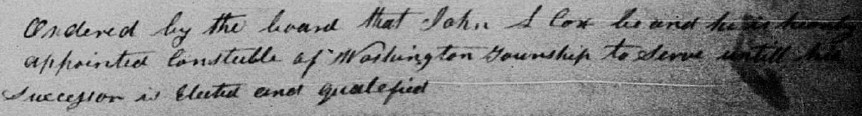 Ordered by the board that John S Cox be and he is hereby
appointed Constable of Washington Township to serve untill his
Successor is Elected and qualefied